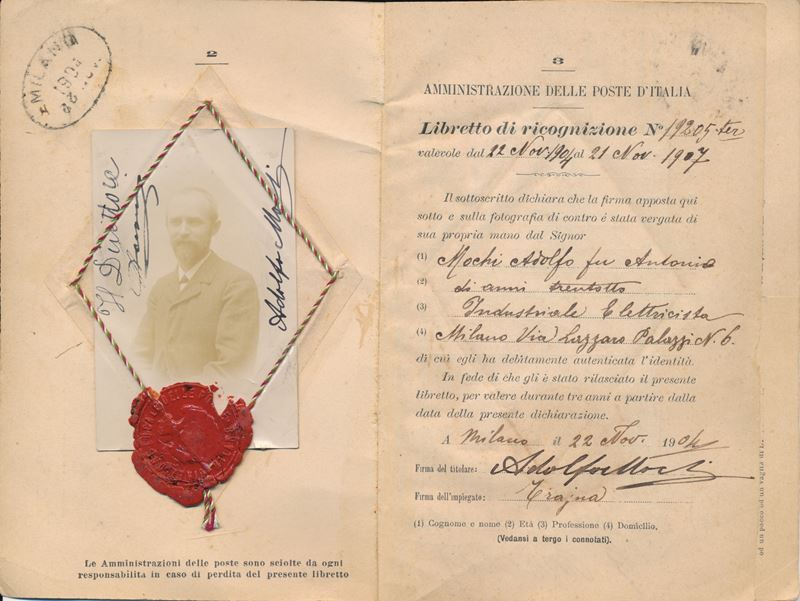 2
MILANO
Il Direttore
Adolfo Mochi
Le Amministrazioni delle poste sono sciolte da ogni
responsabilita in caso di perdita del presente libretto
3
AMMINISTRAZIONE DELLE POSTE D'ITALIA
Libretto di ricognizione N.° 19205 ter
valevole dal 22 Nov. 1904 al 21 Nov. 1907
Il sottoscritto dichiara che la firma apposta qui
sotto e sulla fotografia di contro é stata vergata di
sua propria mano dal Signor
(1) Mochi Adolfo fu Antonio
(2) di anni trentotto
(3) Industriale Elettricista
(4) Milano Via Lazzaro Palazzi N. 6
di cui egli ha debitamente autenticata l'identità.
In fede di che gli è stato rilasciato il presente
libretto, per valere durante tre anni a partire dalla
data della presente dichiarazione.
A Milano il 22 Nov. 1904
Firma del titolare: Adolfo Mochi
Firma dell'impiegato: Trajna
(1) Cognome e nome (2) Età (3) Professione (4) Domicilio.
(Vedansi a tergo i connotati).